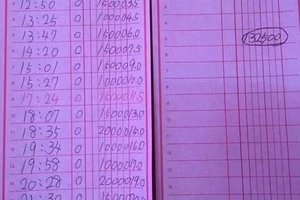 12:50 0 15000 3.5
13:25 0 10000 4.5
13:47 0 15000 6.0
14:20 0 15000 7.5
15:01 0 15000 9.0
15:27 0 10000 10.0
17:24 0 15000 11.5
18:07 0 15000 13.0
18:35 0 20000 15.0
19:34 0 10000 16.0
19:58 0 10000 17.0
20:28 0 20000 19.0
21:30
132500